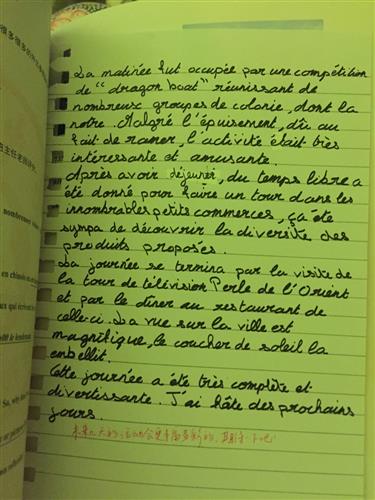 La matinée fut occupée par une compétition
de "dragon boat" réunissant de
nombreux groupes de colonie, dont la
notre. Malgré l'épuisement, dû au
fait de ramer, l'activité était très
intéressante et amusante.
Après avoir déjeuner, du temps libre a
été donné pour faire un tour dans les
innombrables petits commerces, ça été
sympa de découvrir la diversité des
produits proposés.
La journée se termina par la visite de
la tour de télévision Perle de l'Orient
et par le dîner au restaurant de
celle-ci. La vue sur la ville est
magnifique, le coucher de soleil la
embellit.
Cette journée a été très complète et
divertissante. J'ai hâte des prochains
jours.